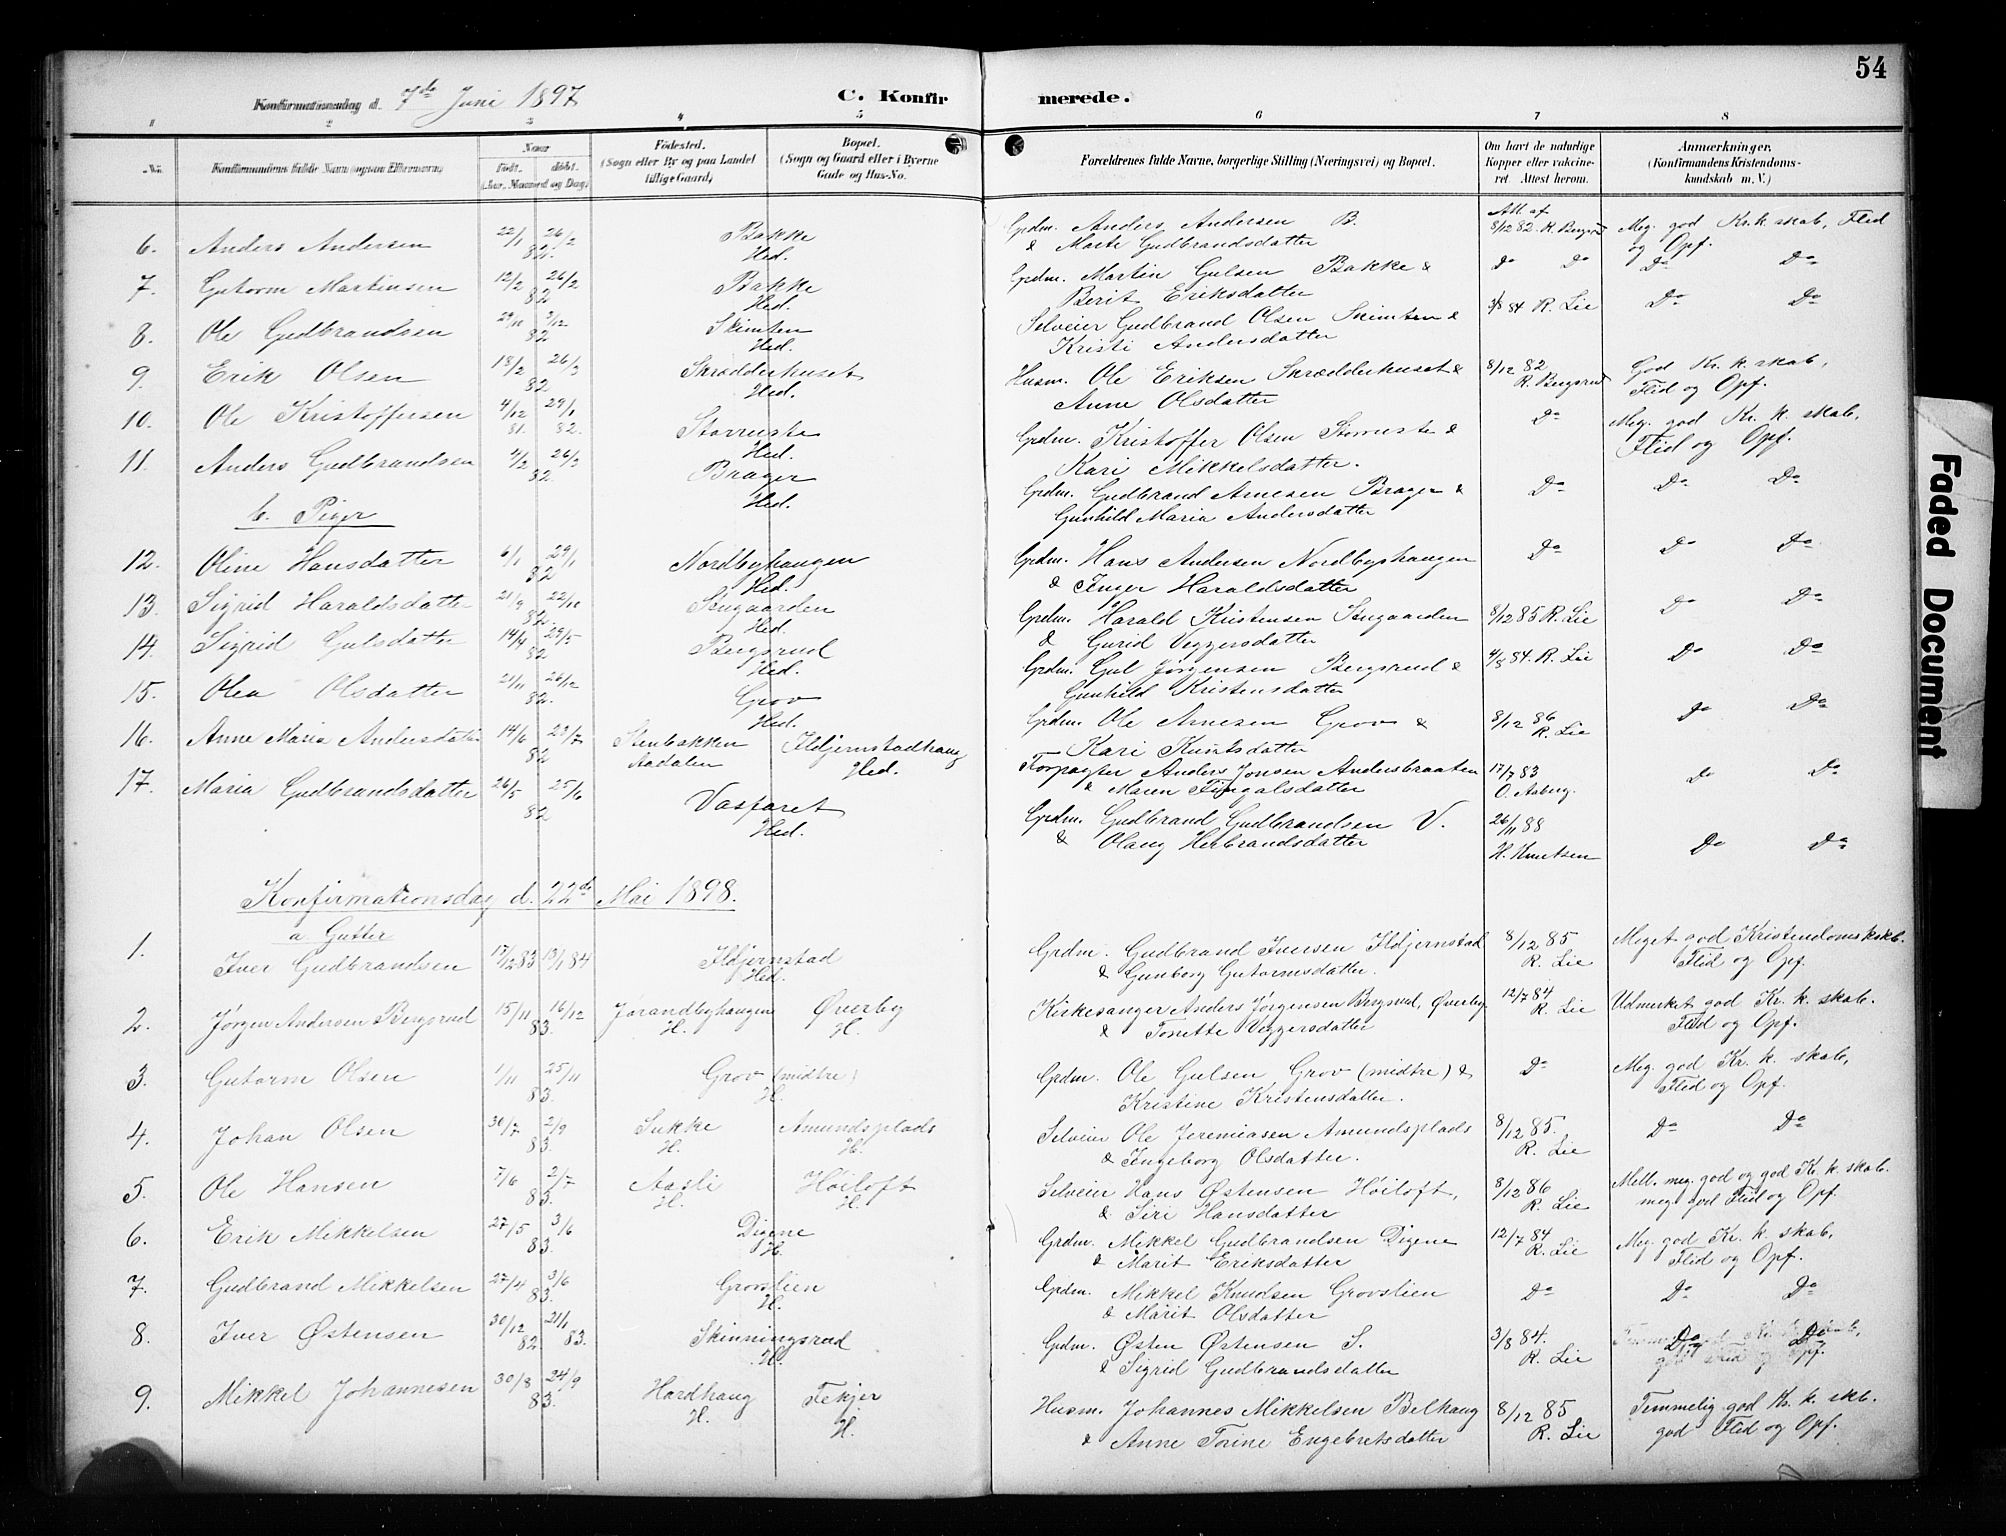 54
Konfirmationsdag d. 7de Juni 1897
C. Konfirmerede.
1 2 3 4 5 6 7 8
No.
Konfirmandens fulde Navn (ogsaa Efternavn)
Naar
født. døbt.
(Aar, Maaned og Dag)
Fødested.
(Sogn eller By og paa Landet
tillige Gaard)
Bopæl.
(Sogn og Gaard eller i Byerne
Gade og Hus-No.
Forældrenes fulde Navne, borgerlige Stilling (Næringsvei) og Bopæl.
Om havt de naturlige
Kopper eller vakcine-
ret. Attest herom.
Anmerkninger.
(Konfirmandens Kristendoms-
kundskab m. V.)
6. Anders Andersen 22/1 26/2 82. Bakke Hed. Grdm. Anders Andersen B. Att. af 8/12 82. R. Bergsrud Meg. god Kr. k. skab, Flid
& Marte Gudbrandsdatter og Opf.
7. Gutorm Martinsen 12/2 26/2 82 Bakke Hed. Grdm. Martin Gulsen Bakke & Do Do Do Do
Berit Eriksdatter
8. Ole Gudbrandsen 29/11 3/12 82 Skimten Hed. Selveier Gudbrand Olsen Skimten & 84 R. Lie Do Do
Kristi Andersdatter
9. Erik Olsen 18/2 26/3 82 Skrædderhuset Hed. Husm. Ole Eriksen Skrædderhuset & 8/12 82 R. Bergsrud God Kr. k. skab,
Anne Olsdatter Flid og Opf.
10. Ole Kristoffersen 4/12 81. 29/1 82. Storruste Hed. Grdm. Kristoffer Olsen Storruste & Do Meg. god Kr. k. skab,
Kari Mikkelsdatter. Flid og Opf.
11. Anders Gudbrandsen 4/2 26/3 82 Brager Hed. Grdm. Gudbrand Arnesen Brager & Do Do Do
Gunhild Maria Andersdatter
b. Piger
12. Oline Hansdatter 6/1 29/1 82 Nordbyhaugen Hed. Grdm. Hans Andersen Nordbyhaugen Do Do Do
& Inger Haraldsdatter
13. Sigrid Haraldsdatter 21/9 22/10 82. Søngaarden Hed. Grdm. Harald Kristensen Søngaarden 8/12 85 R. Lie Do Do
& Gurid Veggersdatter
14. Sigrid Gulsdatter 14/4 29/5 82 Bergsrud Hed. Grdm. Gul Jørgensen Bergsrud & 4/8 84. R. Lie Do Do
Gunhild Kristensdatter
15. Olea Olsdatter 21/11 26/12 82. Grov Hed. Grdm. Ole Arnesen Grov & 8/12 86 R. Lie Do Do
Kari Knutsdatter
16. Anne Maria Andersdatter 14/6 23/7 82 Stenbakken Aadalen Ildjernstadhaug Hed. Forpagter Anders Jonsen Andersbraaten 17/7 83 Do Do
& Maren Fingalsdatter O. Aaberg.
17. Maria Gudbrandsdatter 26/5 25/6 82 Vasfaret Hed. Grdm. Gudbrand Gudbrandsen V. 26/11 88
& Olaug Herbrandsdatter H. Knutsen Do Do
Konfirmationsdag d. 22de Mai 1898.
a. Gutter
1. Iver Gudbrandsen 17/12 83 13/1 84 Ildjernstad Hed. Grdm. Gudbrand Iversen Ildjernstad 8/12 85 Meget god Kristendomskskb.
& Gunborg Gutormsdatter. R. Lie Flid og Opf.
2. Jørgen Andersen Bergsrud 15/11 16/12 83. Jørandbyhaugen H. Øverby H. Kirkesanger Anders Jørgensen Bergsrud, Øverby 12/7 84 Udmerket god Kr. k. skab.
& Tonette Veggersdatter R. Lie Flid og Opf.
3. Gutorm Olsen 1/11 25/11 83. Grov (midtre) H. Grdm. Ole Gulsen Grov (midtre) & Do Meg. god Kr. k. skab,
Kristine Kristensdatter. Flid og Opf.
4. Johan Olsen 30/7 2/9 83. Sukke H. Amundsplads H. Selveier Ole Jeremiasen Amundsplads 8/12 85. Do Do
& Ingeborg Olsdatter. R. Lie
5. Ole Hansen 7/6 2/7 83. Aasli H. Høiloft H. Selveier Hans Østensen Høiloft, 8/12 86 Mell. meg. god og god Kr. k. skab.
& Siri Hansdatter R. Lie meg. god Flid og Opf.
6. Erik Mikkelsen 27/5 3/6 83. Digene H. Grdm. Mikkel Gudbrandsen Digene 12/7 84 Meg. god Kr. k. skab,
& Marit Eriksdatter R. Lie Flid og Opf.
7. Gudbrand Mikkelsen 27/4 3/6 83. Grovslien H. Grdm. Mikkel Knudsen Grovslien Do Do Do
& Marit Olsdatter
8. Iver Østensen 30/12 82 21/1 83. Skinningsrud H. Grdm. Østen Østensen S. 3/8 84. Do Do
& Sigrid Gudbrandsdatter R. Lie
9. Mikkel Johannesen 30/8 24/9 83. Hardhaug H. Tekjer H. Husm. Johannes Mikkelsen Belhaug 8/12 85 Temmelig god Kr. k. skb.
& Anne Torine Engebretsdatter R. Lie god Flid og Opf.
Faded Document